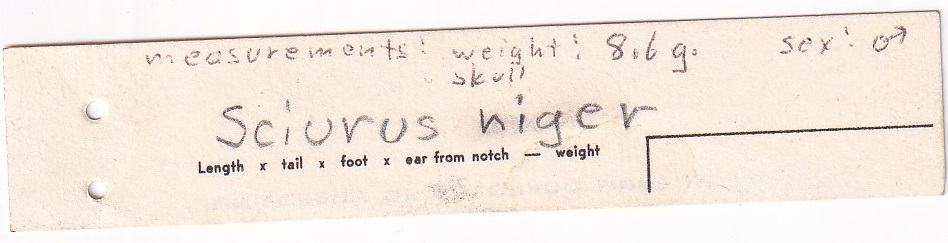 measurements: weight: 8.6 g. sex: ♂
skull
Sciurus niger
Length x tail x foot x ear from notch — weight